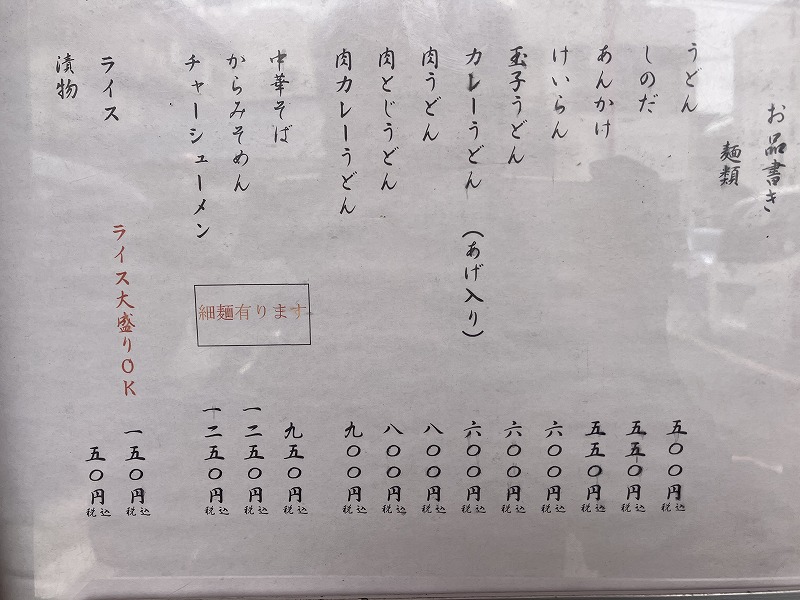 お品書き
麺類
うどん 五〇〇円 税込
しのだ 五五〇円 税込
あんかけ 五五〇円 税込
けいらん 六〇〇円 税込
玉子うどん 六〇〇円 税込
カレーうどん (あげ入り) 六〇〇円 税込
肉うどん 八〇〇円 税込
肉とじうどん 八〇〇円 税込
肉カレーうどん 九〇〇円 税込
中華そば 九五〇円 税込
からみそめん 一二五〇円 税込
チャーシューメン 一二五〇円 税込
細麺有ります
ライス 一五〇円 税込
ライス大盛りOK
漬物 五〇円 税込